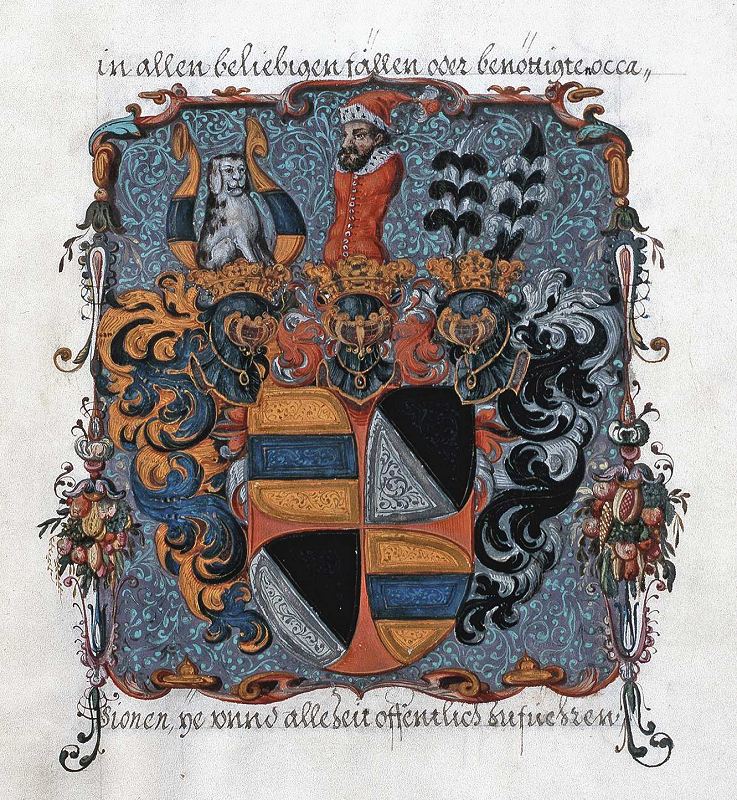 in allen beliebigen fällen oder benöttigten occa„
sionen, ye vnnd allezeit offentlich zufuehren